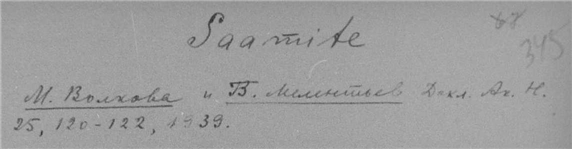 Saamite
68
345
М. Волкова и В. Мелентьев Докл. Ак. Н.
25, 120-122, 1939.